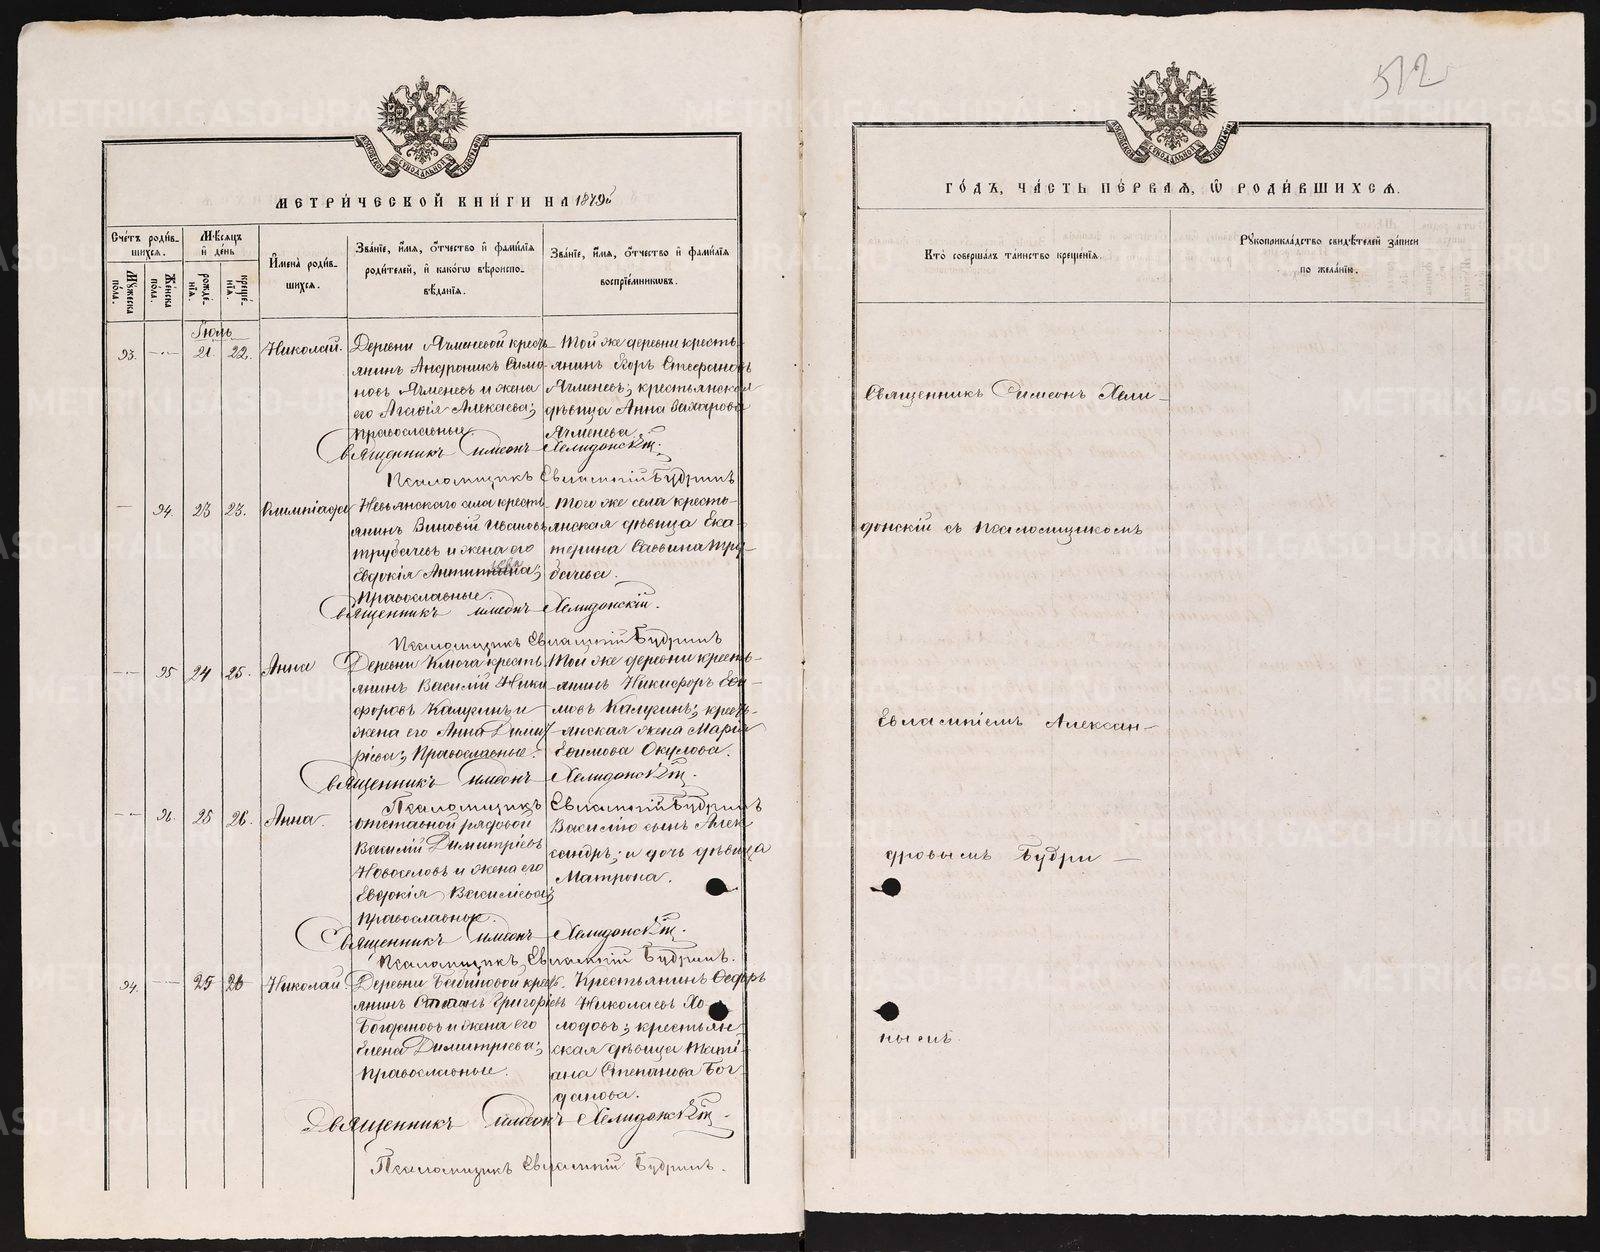 МЕТРИ́ЧЕСКОЙ КНИ́ГИ НА 1879й
Сче́тъ роди́вшихся.
Му́жеска по́ла.
Же́нска по́ла.
Мѣ́сяцъ и҆ де́нь
рожде́нїѧ.
креще́нїѧ.
И҆мена̀ роди́вшихся.
Зва́нїе, и҆́мѧ, ѻ҆́тчество и҆ фами́лїѧ роди́телей, и҆ како́гѡ вѣроисповѣ́данїѧ.
Зва́нїе, и҆́мѧ, ѻ҆́тчество и҆ фами́лїѧ воспрїе́мникѡвъ.
Іюль
93. — 21. 22. Николай.
Деревни Ячменевой кресть-
янинъ Андроникъ Симо-
новъ Ячменевъ и жена
его Агафія Алексѣева;
православные
Той же деревни кресть-
янинъ Егоръ Стефановъ
Ячменевъ; крестьянская
дѣвица Анна Захарова
Ячменева.
Священникъ Симеонъ Хелидонскій.
Псаломщикъ Евлампій Будринъ
— 94. 23 23. Олимпіада
Невьянскаго села кресть-
янинъ Зиновій Ивановъ
Трубачевъ и жена его
Евдокія
Православные.
Того же села кресть-
янская дѣвица Ека-
терина Саввина Тру-
бачева.
Священникъ Симеонъ Хелидонскій.
Псаломщикъ Евлампій Будринъ
— 95 24 25. Анна
Деревни Ключа кресть-
янинъ Василій Ники-
форовъ Калугинъ и
жена его Анна Димит-
ріева; Православные.
Той же деревни кресть-
янинъ Никифоръ Ефи-
мовъ Калугинъ; кресть-
янская жена Марія
Ефимова Окулова.
Священникъ Симеонъ Хелидонскій.
Псаломщикъ Евлампій Будринъ
— 96. 25 26. Анна.
отставной рядовой
Василій Димитріевъ
Новоселовъ и жена его
Евдокія Васильева;
православные.
Василію сынъ Алек-
сандръ; и дочь дѣвица
Матрона.
Священникъ Симеонъ Хелидонскій.
Псаломщикъ Евлампій Будринъ.
94. — 25 26 Николай
Деревни Бабиновой крест-
янинъ Степанъ Григорьевъ
Богдановъ и жена его
Елена Димитріева;
православные.
Крестьянинъ Ѳедоръ
Николаевъ Хо-
лодовъ; крестьян-
ская дѣвица Тати-
ана Степанова Бог-
данова.
Священникъ Симеонъ Хелидонскій.
Псаломщикъ Евлампій Будринъ.
512
ГО́ДЪ, ЧА́СТЬ ПЕ́РВАѦ, Ѡ҆ РОДИ́ВШИХСѦ.
Кто̀ соверша́лъ та́инство креще́нїѧ.
Рꙋкоприкла́дство свидѣ́телей за́писи по жела́нїю.
Священникъ Симеонъ Хели-
донскій съ псаломщикомъ
Евлампіемъ Алексан-
дровымъ Будри-
нымъ.
METRIKI.GASO-URAL.RU